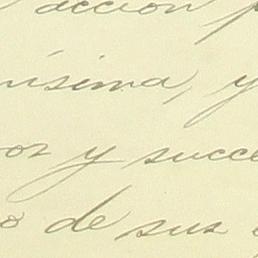 accion
ísima, y
or y suce
o de sus